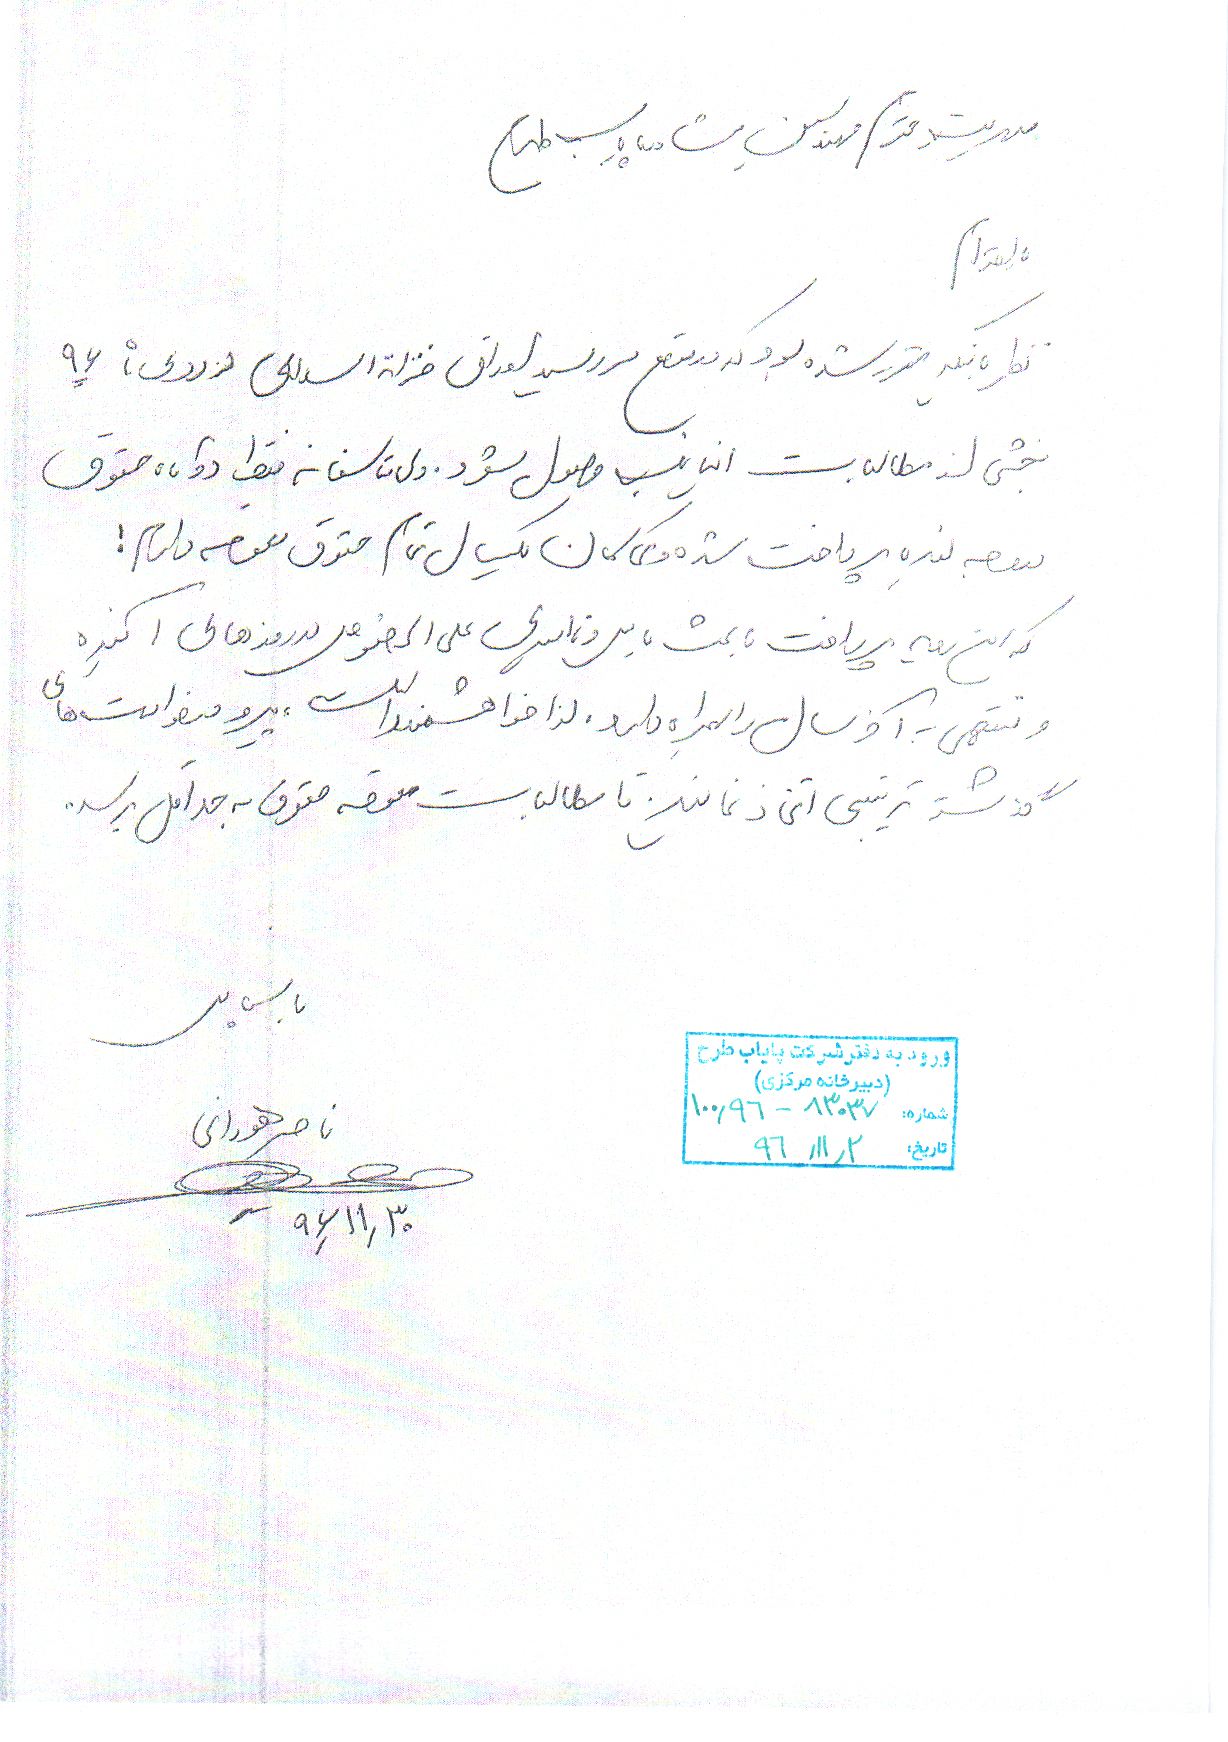 مدیریت محترم مهندسین مشاور پایاب طرح
با احترام
نظر به اینکه مقرر شده بود که در مقطع سررسید اوراق خزانه اسلامی ۹۶
بخشی از مطالبات اینجانب وصول شود. ولی متاسفانه فقط دو ماه حقوق
معوقه بنده پرداخت شده و کماکان یکسال تمام حقوق معوقه دارم!
که این رویه پرداخت علی الخصوص در روزهای آینده
و منتهی به آخر سال را همراه دارد. لذا خواهشمند است پیرو درخواست های
گذشته ترتیبی اتخاذ نمائید تا مطالبات معوقه حقوق به حداقل برسد.
با سپاس
ناصر هورانی
۹۶/۱۱/۳۰
ورود به دفتر شرکت پایاب طرح
(دبیرخانه مرکزی)
شماره: ۱۰۰/۹۶ - ۸۳۰۳۷
تاریخ: ۹۶/۱۱/۲